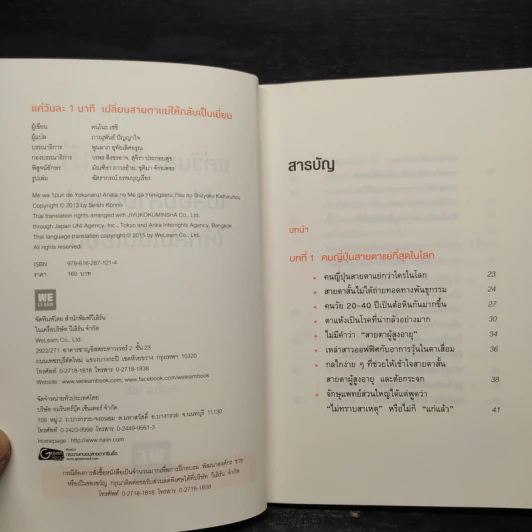 แค่วันละ 1 นาที เปลี่ยนสายตาแย่ให้กลับเป็นเยี่ยม
ผู้เขียน คนโนะ เซชิ
ผู้แปล ภาณุพันธ์ ปัญญาใจ
บรรณาธิการ
กองบรรณาธิการ
พิสูจน์อักษร
รูปเล่ม
Me wa 1pun de Yokunaru!
Copyright © 2013 by Seishi Konno
Thai translation rights arranged with JIYUKOKUMINSHA Co., Ltd.
through Japan UNI Agency, Inc., Tokyo and Arika Interrights Agency, Bangkok
Thai language translation copyright © 2015 by WeLearn Co., Ltd.
All rights reserved.
ISBN 978-616-287-121-4
ราคา 160 บาท
WE
LEARN
จัดพิมพ์โดย สำนักพิมพ์วีเลิร์น
ในเครือบริษัท วีเลิร์น จำกัด
WeLearn Co., Ltd.
2922/271 อาคารชาญอิสสระทาวเวอร์ 2 ชั้น 23
ถนนเพชรบุรีตัดใหม่ แขวงบางกะปิ เขตห้วยขวาง กรุงเทพฯ 10320
โทรศัพท์ 0-2718-1818 โทรสาร 0-2718-1836
Website : www.welearnbook.com, www.facebook.com/welearnbook
จัดจำหน่ายทั่วประเทศโดย
บริษัท อมรินทร์บุ๊ค เซ็นเตอร์ จำกัด
108 หมู่ 2 ถ.บางกรวย-จงถนอม ต.มหาสวัสดิ์ อ.บางกรวย จ.นนทบุรี 11130
โทรศัพท์ 0-2423-9999 โทรสาร 0-2449-9561-3
Homepage : http://www.naiin.com
กรณีต้องการสั่งซื้อหนังสือเป็นจำนวนมากเพื่อการฝึกอบรม พัฒนาองค์กร ขาย
หรือเป็นของขวัญ กรุณาติดต่อขอรับส่วนลดพิเศษได้ที่บริษัท วีเลิร์น จำกัด
โทรศัพท์ 0-2718-1818
สารบัญ
บทนำ
บทที่ 1 คนญี่ปุ่นสายตาแย่ที่สุดในโลก
• คนญี่ปุ่นสายตาแย่กว่าใครในโลก 23
• สายตาสั้นไม่ได้ถ่ายทอดทางพันธุกรรม 24
• คนวัย 20-40 ปีเป็นต้อหินกันมากขึ้น 27
• ตาแห้งเป็นโรคที่น่ากลัวอย่างมาก 30
• ไม่มีคำว่า “สายตาผู้สูงอายุ” 34
• เหล่าสาวออฟฟิศกับอาการวุ้นในตาเสื่อม 36
• กลไกง่าย ๆ ที่ช่วยให้เข้าใจสายตาสั้น
สายตาผู้สูงอายุ และต้อกระจก 38
• จักษุแพทย์ส่วนใหญ่ได้แต่พูดว่า
“ไม่ทราบสาเหตุ” หรือไม่ก็ “แก่แล้ว” 41